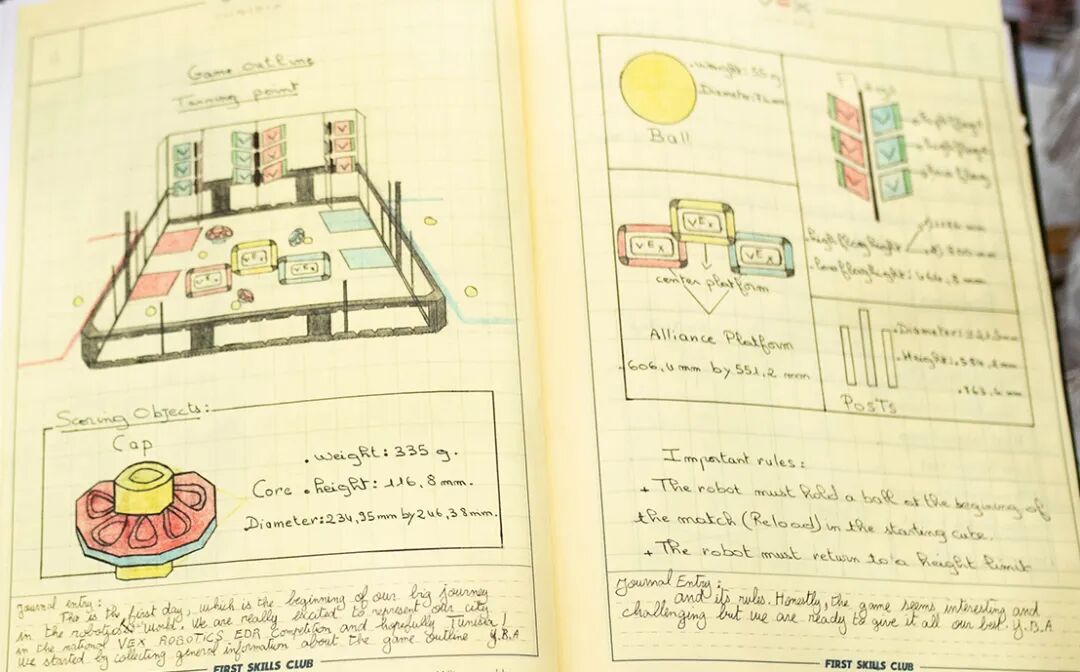 TUNISIA
Game outline
Turning point
VEX
VEX
VEX
Scoring Objects:
Cap
. weight: 335 g.
Core . height: 116,8 mm.
Diameter: 234,95mm by 246,38mm.
Journal entry:
This is the first day, which is the beginning of our big journey
in the robotics world. We are really excited to represent our city
in the national VEX ROBOTICS EDR Competition and hopefully Tunisia!
we started by collecting general information about the game outline Y.B.A
FIRST SKILLS CLUB
VEX
. Weight: 55 g
. Diameter:
Ball
VEX
VEX
VEX
center platform
Alliance Platform
. 606,4 mm by 551,2 mm
high flag height
low flag height:
. Diameter:
. Height:
Posts
Important rules:
+ The robot must hold a ball at the begining of
the match (Reload) in the starting cube.
+ The robot must return to a height limit
Journal Entry:
and its rules. Honestly, the game seems interesting and
challenging but we are ready to give it all our best. Y.B.A
FIRST SKILLS CLUB